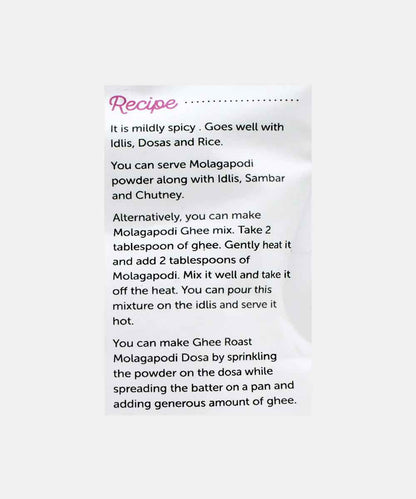 Recipe
It is mildly spicy . Goes well with
Idlis, Dosas and Rice.
You can serve Molagapodi
powder along with Idlis, Sambar
and Chutney.
Alternatively, you can make
Molagapodi Ghee mix. Take 2
tablespoon of ghee. Gently heat it
and add 2 tablespoons of
Molagapodi. Mix it well and take it
off the heat. You can pour this
mixture on the idlis and serve it
hot.
You can make Ghee Roast
Molagapodi Dosa by sprinkling
the powder on the dosa while
spreading the batter on a pan and
adding generous amount of ghee.